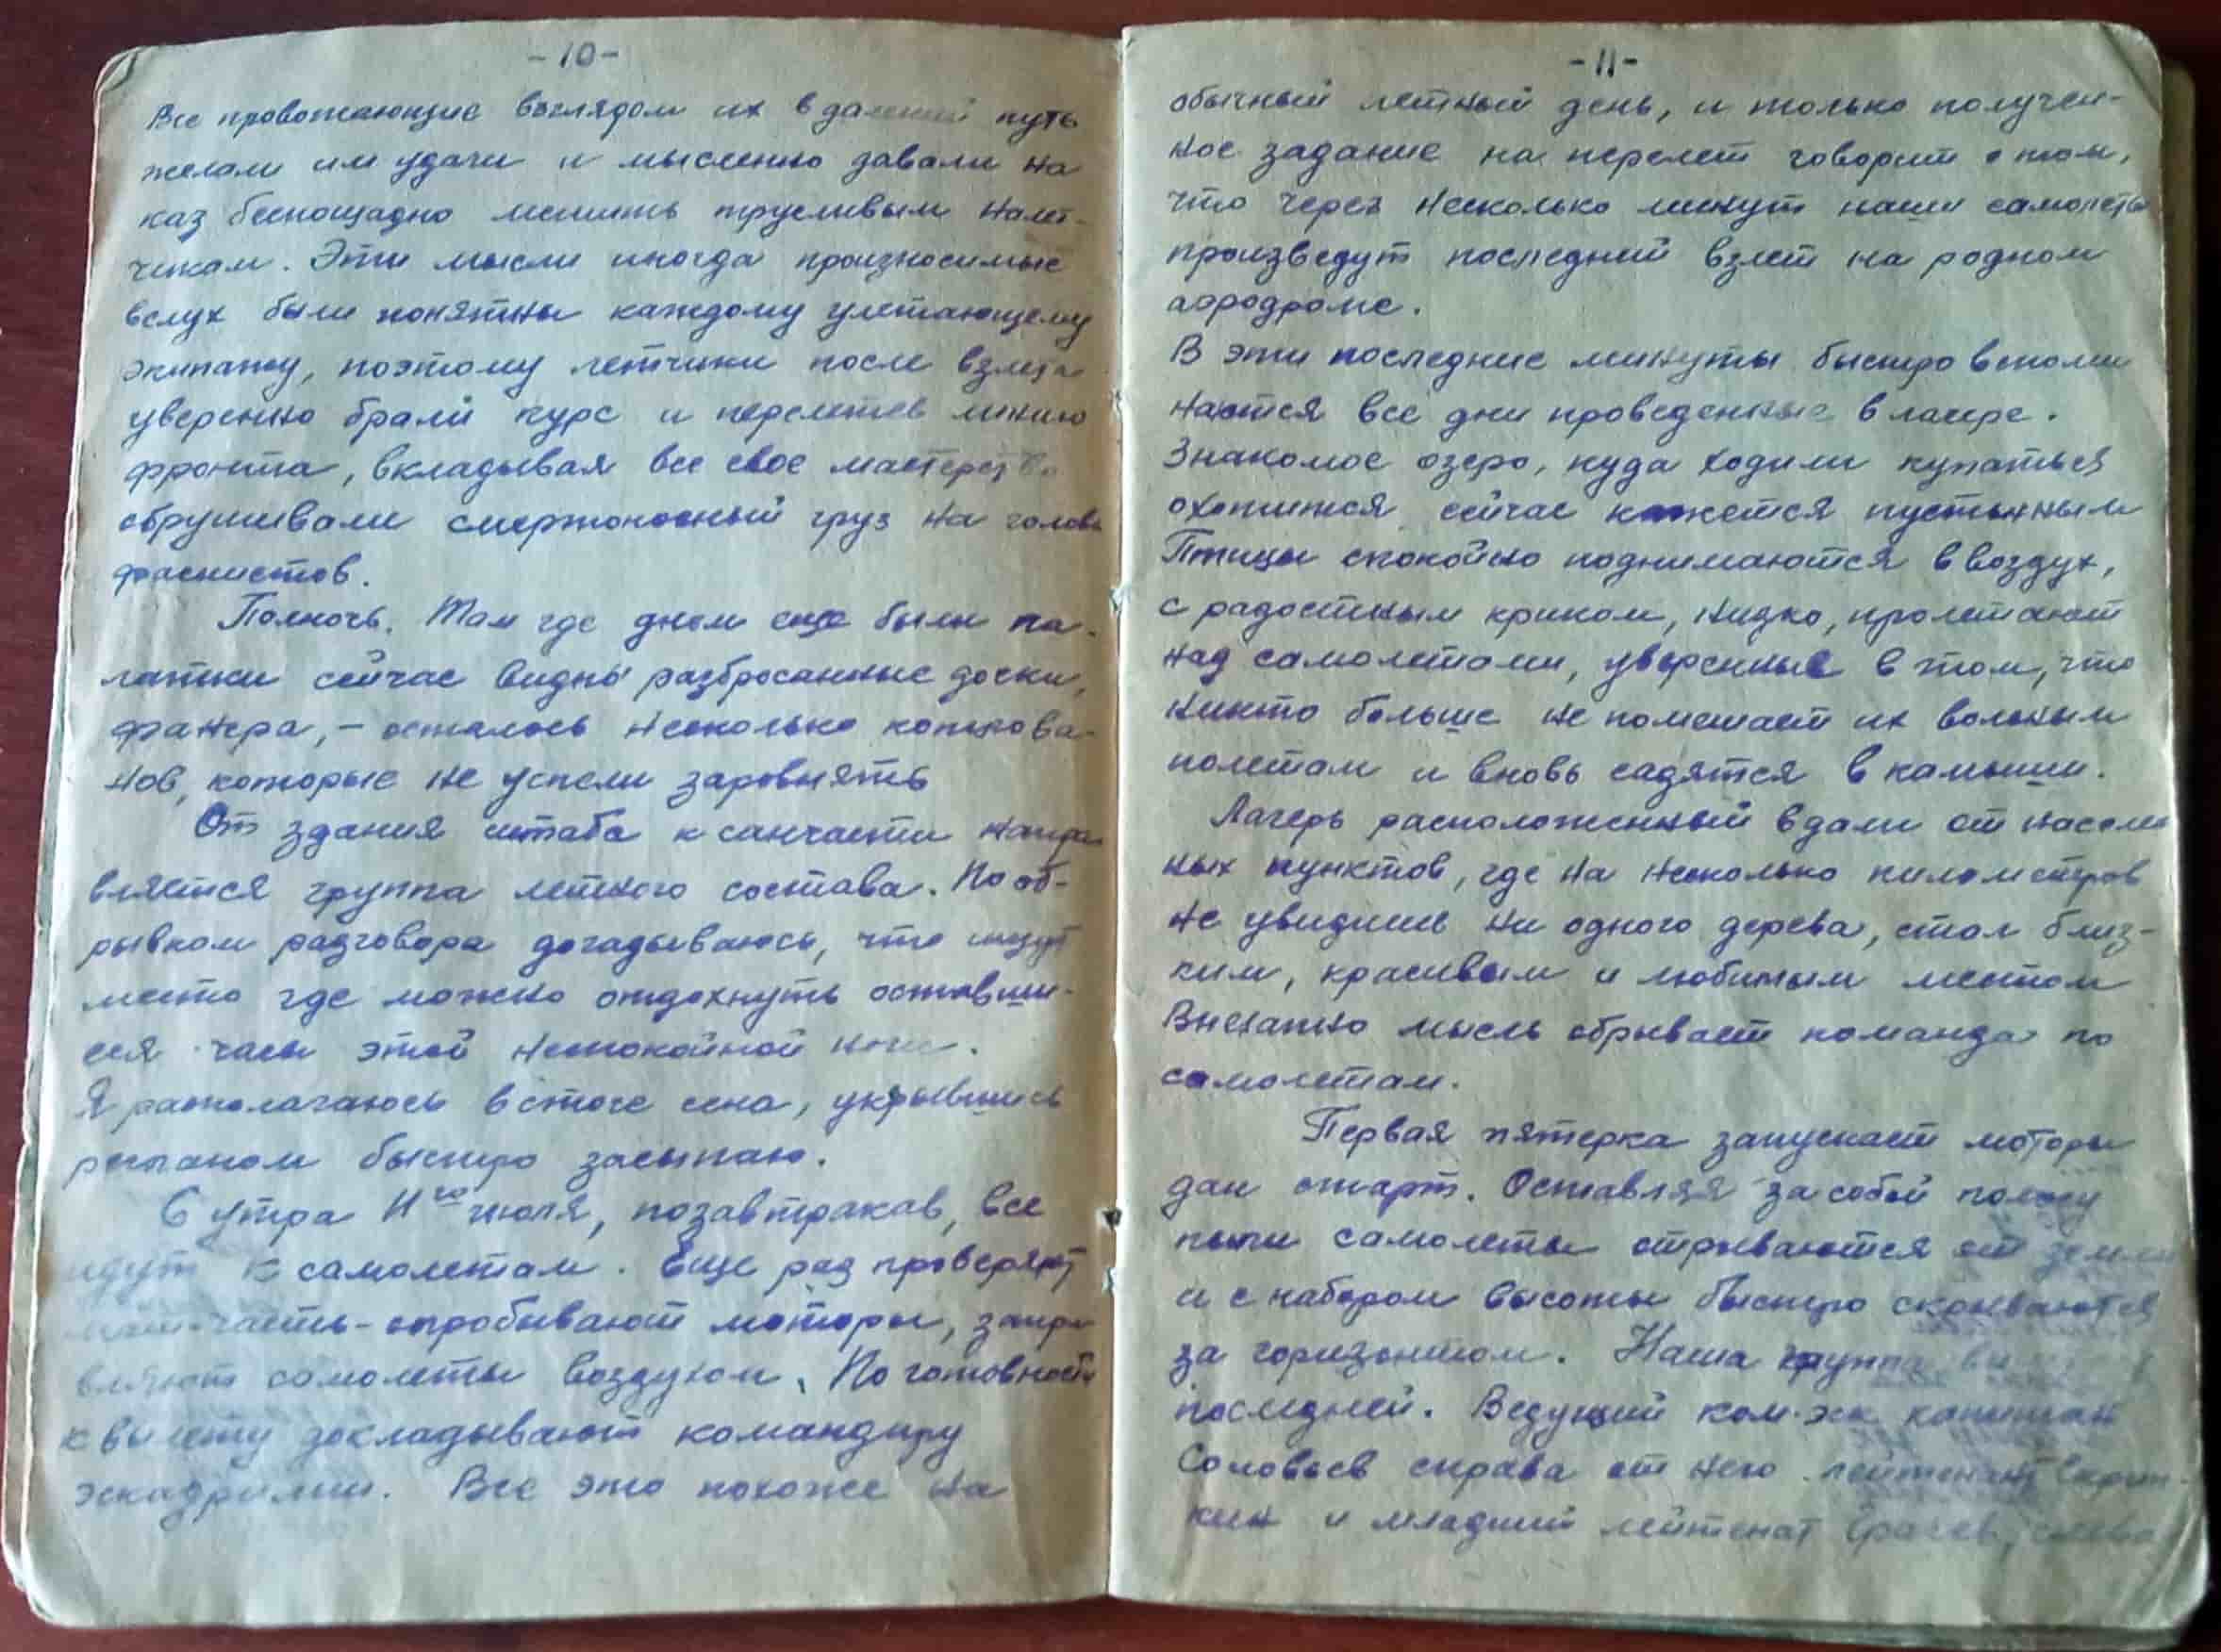 -10-
Все провожающие взглядом их в далекий путь
желали им удачи и мысленно давали на
каз беспощадно мстить трусливым налет-
чикам. Эти мысли иногда произносимые
вслух были понятны каждому улетающему
экипажу, поэтому летчики после взлета
уверенно брали курс и перелетев линию
фронта, вкладывая все свое мастерство
обрушивали смертоносный груз на головы
фашистов.
Полночь. Там где днем еще были па-
латки сейчас видны разбросанные доски,
фанера, - осталось несколько котлова-
нов, которые не успели заровнять
От здания штаба к санчасти напра
вляется группа летного состава. По об-
рывкам разговора догадываюсь, что ищут
место где можно отдохнуть оставши-
еся часы этой неспокойной ночи.
Я располагаюсь в стоге сена, укрывшись
регланом быстро засыпаю.
С утра 11го июля, позавтракав, все
идут к самолетам. Еще раз проверяют
мат.часть - опробывают моторы, запра
вляют самолеты воздухом. По готовности
к вылету докладывают командиру
эскадрильи. Все это похоже на
-11-
обычный летный день, и только получен-
ное задание на перелет говорит о том,
что через несколько минут наши самолеты
произведут последний взлет на родном
аэродроме.
В эти последние минуты быстро вспоми
наются все дни проведенные в лагере.
Знакомое озеро, куда ходили купаться
охотится сейчас кажется пустынным
Птицы спокойно поднимаются в воздух,
с радостным криком, низко, пролетают
над самолетами, уверенные в том, что
никто больше не помешает их вольным
полетам и вновь садятся в камыши.
Лагерь расположенный вдали от населе
ных пунктов, где на несколько километров
не увидишь ни одного дерева, стал близ-
ким, красивым и любимым местом
Внезапно мысль обрывает команда по
самолетам.
Первая пятерка запускает моторы
дан старт. Оставляя за собой полосу
пыли самолеты отрываются от земли
и с набором высоты быстро скрываются
за горизонтом. Наша группа
последней. Ведущий ком.эск капитан
Соловьев справа от него лейтенант
кин и младший лейтенат слева